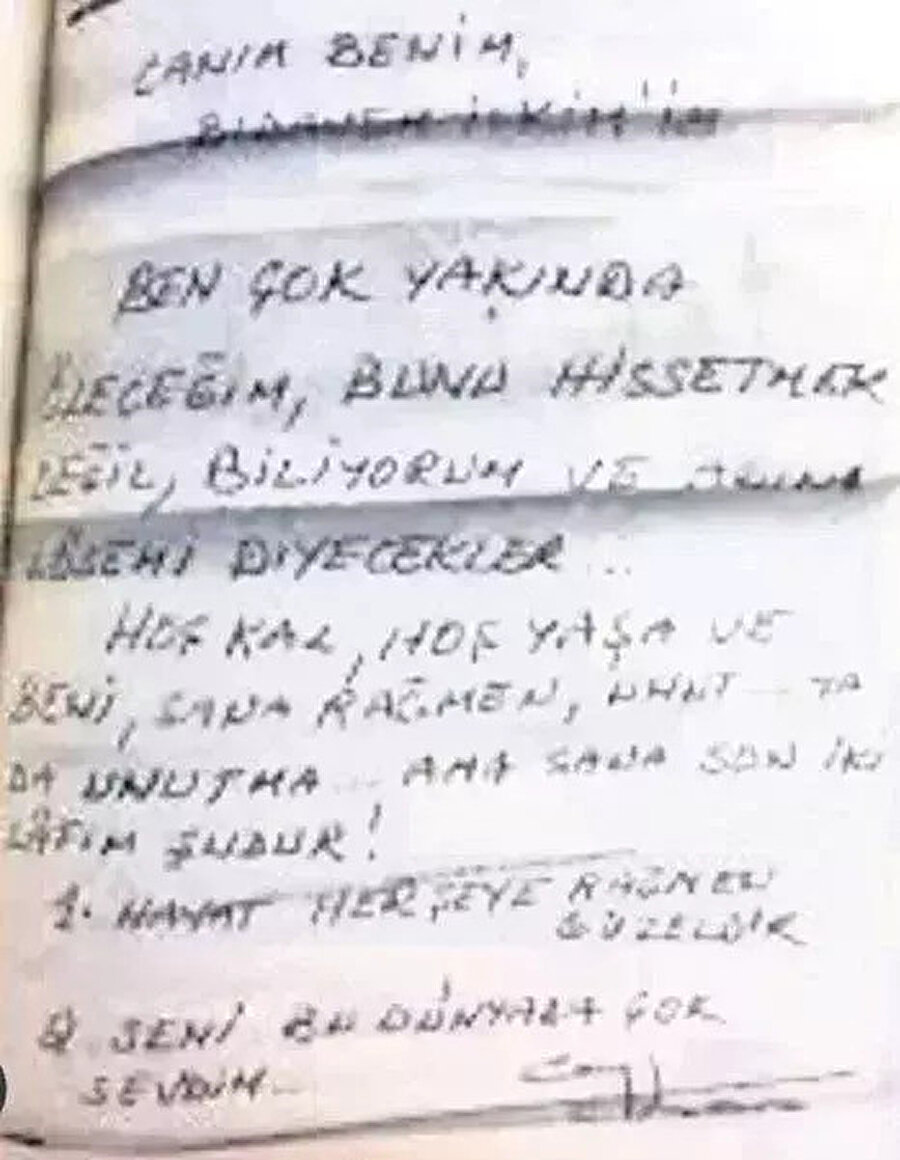 CANIM BENİM,
BEN ÇOK YAKINDA
ÖLECEĞİM, BUNU HİSSETMEK
DEĞİL, BİLİYORUM VE
LÖSEMİ DİYECEKLER...
HOŞ KAL, HOŞ YAŞA VE
BENİ, SANA RAĞMEN, UNUT... YA
DA UNUTMA... AMA SANA SON İKİ
LÂFIM ŞUDUR!
1. HAYAT HERŞEYE RAĞMEN
GÜZELDİR
2. SENİ BU DÜNYADA ÇOK
SEVDİM...